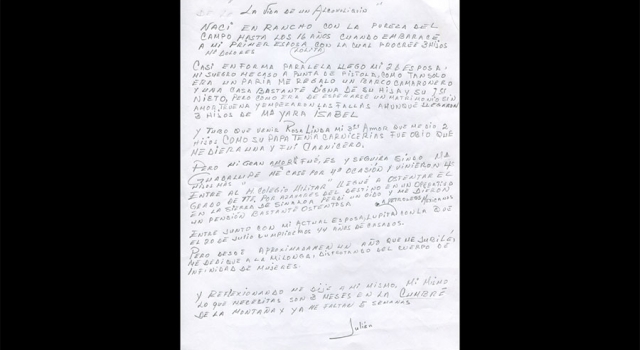 "La Vida de un Alcoholico"
NACI EN RANCHO CON LA POREZA DEL
CAMPO HASTA LOS 16 AÑOS CUANDO EMBARACE,
A MI PRIMER ESPOSA CON LA CUAL PROCREE 3 HIJOS
Mª DOLORES
CASI EN FORMA PARALELA LLEGO MI 2ª ESPOSA,
MI SUEGRO ME CASO A PUNTA DE PISTOLA, COMO TAN SOLO
ERA UN PARIA ME REGALO UN BARCO CAMARONERO
Y UNA CASA BASTANTE DIGNA DE SU HIJA Y SU 1er
NIETO, PERO COMO ERA DE ESPERARSE UN MATRIMONIO SIN
AMOR, Y EMPEZARON LAS FALLAS AUNQUE LLEGARON
3 HIJOS DE MAYARA ISABEL
Y TUBO QUE VENIR ROSA LINDA MI 3er AMOR QUE ME DIO 2
HIJOS COMO SU PAPA TENIA CARNICERIAS FUE OBIO QUE
ME DIERA UNA Y FUI CARNICERO.
PERO MI GRAN AMOR FUÉ, ES Y SEGUIRA SIENDO MA
GUADALUPE ME CASE POR 4a OCASIÓN Y VINIERON 4
HIJOS MAS
ENTRE AL H. COLEGIO MILITAR LLEGUÉ A OSTENTAR EL
GRADO DE POR AZARES DEL DESTINO EN UN OPERATIVO
EN LA SIERRA DE SINALOA PERDI UN OIDO Y ME DIERON
UN PENSIÓN BASTANTE OSTENTOSA
A PETROLEOS MEXICANOS
ENTRE JUNTO CON MI ACTUAL ESPOSA, LUPITA CON LA QUE
EL 20 DE JULIO CUMPLIREMOS AÑOS DE CASADOS.
PERO DESDE APROXIMADAMENTE UN AÑO QUE ME JUBILÉ,
ME DEDIQUE A LA MILONGA, DISFRUTANDO DEL CUERPO DE
INFINIDAD DE MUJERES.
Y REFLEXIONANDO ME DIJE A MI MISMO, MI MISMO
LO QUE NECESITAS SON 3 MESES EN LA CUMBRE
DE LA MONTAÑA Y YA ME FALTAN 5 SEMANAS
Julian